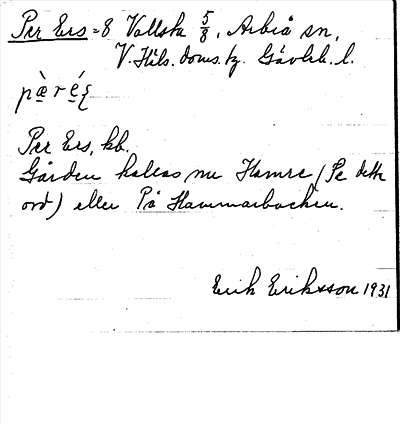 Per Ers = 8 Vallsta 5/8, Arbrå sn,
V. Häls. doms. tg. Gävleb. l.
Per Ers, kb.
Gården kallas nu Hamre (Se detta
ord) eller På Hammarbacken.
Erik Eriksson 1931